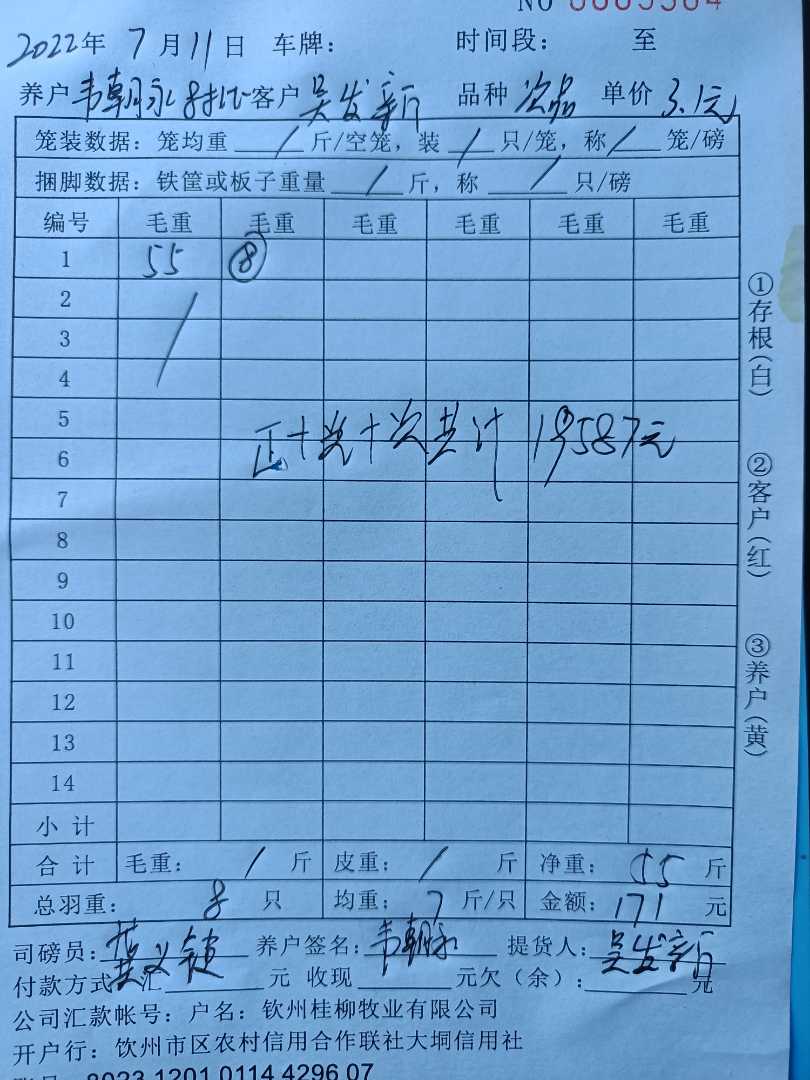 NO 0005564
2022年 7月11日 车牌: 时间段: 至
养户 韦朝永 客户 吴发新 品种 次品 单价 3.1元
笼装数据: 笼均重 / 斤/空笼, 装 / 只/笼, 称 / 笼/磅
捆脚数据: 铁筐或板子重量 / 斤, 称 / 只/磅
编号 毛重 毛重 毛重 毛重 毛重 毛重
1 55 ⑧
2 /
3
4
5
正十光十次共计 19587元
6
7
8
9
10
11
12
13
14
小计
合计 毛重: / 斤 皮重: / 斤 净重: 55 斤
总羽重: 8 只 均重: 7 斤/只 金额: 171 元
司磅员: 养户签名: 韦朝永 提货人: 吴发新
付款方式 汇 元 收现 元欠(余): 元
公司汇款帐号: 户名: 钦州桂柳牧业有限公司
开户行: 钦州市区农村信用合作联社大垌信用社
8023 1201 0114 4296 07
①存根(白)
②客户(红)
③养户(黄)